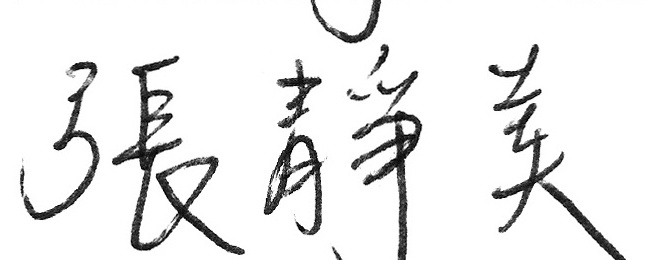 張靜美